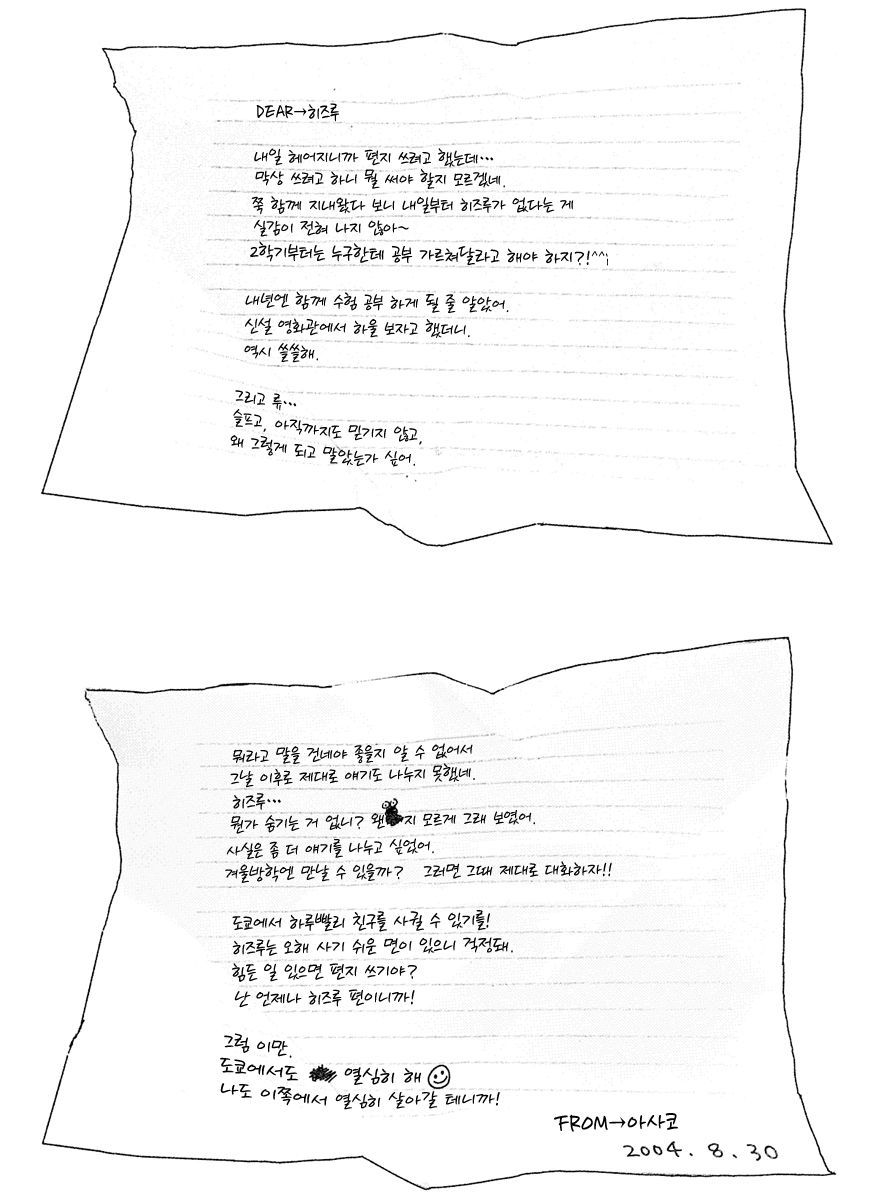 DEAR→히즈루
내일 헤어지니까 편지 쓰려고 했는데…
막상 쓰려고 하니 뭘 써야 할지 모르겠네.
쭉 함께 지내왔다 보니 내일부터 히즈루가 없다는 게
실감이 전혀 나지 않아~
2학기부터는 누구한테 공부 가르쳐달라고 해야 하지?!^^;
내년엔 함께 수험 공부 하게 될 줄 알았어.
신설 영화관에서 하울 보자고 했더니.
역시 쓸쓸해.
그리고 류…
슬프고, 아직까지도 믿기지 않고,
왜 그렇게 되고 말았는가 싶어.
뭐라고 말을 건네야 좋을지 알 수 없어서
그날 이후로 제대로 얘기도 나누지 못했네.
히즈루…
뭔가 숨기는 거 없니? 왠지 모르게 그래 보였어.
사실은 좀 더 얘기를 나누고 싶었어.
겨울방학엔 만날 수 있을까? 그러면 그때 제대로 대화하자!!
도쿄에서 하루빨리 친구를 사귈 수 있기를!
히즈루는 오해 사기 쉬운 면이 있으니 걱정돼.
힘든 일 있으면 편지 쓰기야?
난 언제나 히즈루 편이니까!
그럼 이만.
도쿄에서도 열심히 해
나도 이쪽에서 열심히 살아갈 테니까!
FROM→아사코
2004. 8. 30